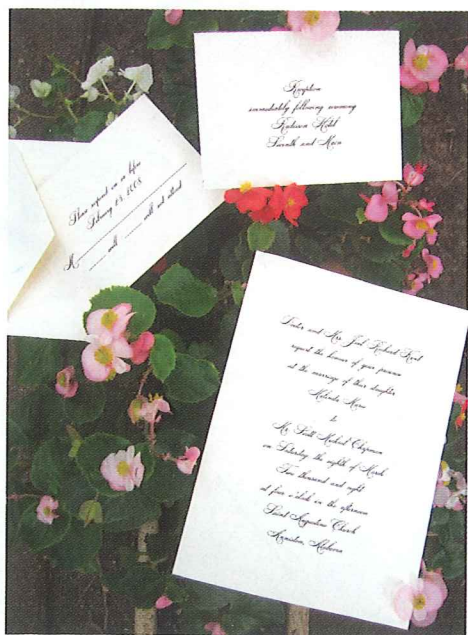 Reception
immediately following ceremony
Radisson Hotel
Seventh and Main
Please respond on or before
February 13, 2008
M
will will not attend
and Mrs. Joel Richard
request the honour of your presence
at the marriage of their daughter
Melinda
to
Mr. Scott Michael Chapman
on Saturday, the eighth of March
Two thousand and eight
at five o'clock in the afternoon
Saint Augustine Church
Alabama